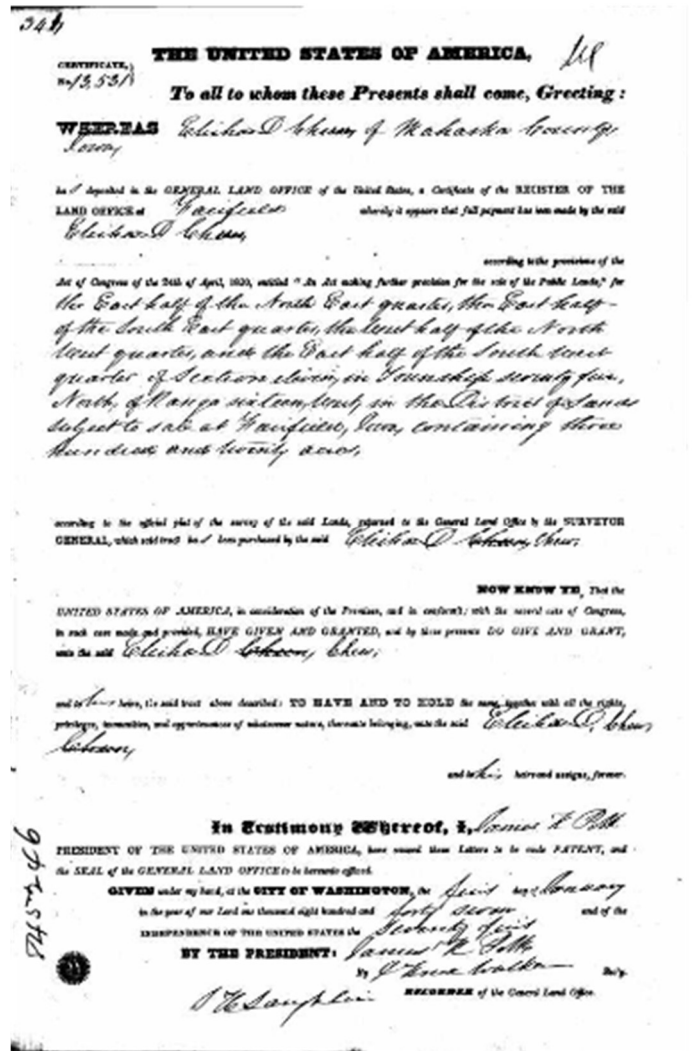 344
THE UNITED STATES OF AMERICA,
CERTIFICATE,
No. 13,531
To all to whom these Presents shall come, Greeting:
WHEREAS Elisha D Chew of Mahaska County
Iowa,
ha deposited in the GENERAL LAND OFFICE of the United States, a Certificate of the REGISTER OF THE
LAND OFFICE at Fairfield whereby it appears that full payment has been made by the said
Elisha D
according to the provisions of the
Act of Congress of the 24th of April, 1820, entitled "An Act making further provision for the sale of the Public Lands," for
the East half of the North East quarter, the East half
of the South East quarter, the West half of the North
West quarter, and the East half of the South West
quarter of Section eleven, in Township seventy five,
North, of Range sixteen, West, in the District of Lands
subject to sale at Fairfield, Iowa, containing three
hundred and twenty acres,
according to the official plat of the survey of the said Lands, returned to the General Land Office by the SURVEYOR
GENERAL, which said tract ha been purchased by the said Elisha D Chew,
NOW KNOW YE, That the
UNITED STATES OF AMERICA, in consideration of the Premises, and in conformity with the several acts of Congress,
in such case made and provided, HAVE GIVEN AND GRANTED, and by these presents DO GIVE AND GRANT,
unto the said Elisha D Chew,
and to his heirs, the said tract above described: TO HAVE AND TO HOLD the same, together with all the rights,
privileges, immunities, and appurtenances of whatsoever nature, thereunto belonging, unto the said Elisha D, Chew
and to his heirs and assigns, forever.
In Testimony Whereof, I, James K Polk
PRESIDENT OF THE UNITED STATES OF AMERICA, have caused these Letters to be made PATENT, and
the SEAL of the GENERAL LAND OFFICE to be hereunto affixed.
GIVEN under my hand, at the CITY OF WASHINGTON, the first day of January
in the year of our Lord one thousand eight hundred and forty seven and of the
INDEPENDENCE OF THE UNITED STATES the Seventy first
BY THE PRESIDENT: James K Polk
By J Knox Walker Sec'y.
S H Laughlin RECORDER of the General Land Office.